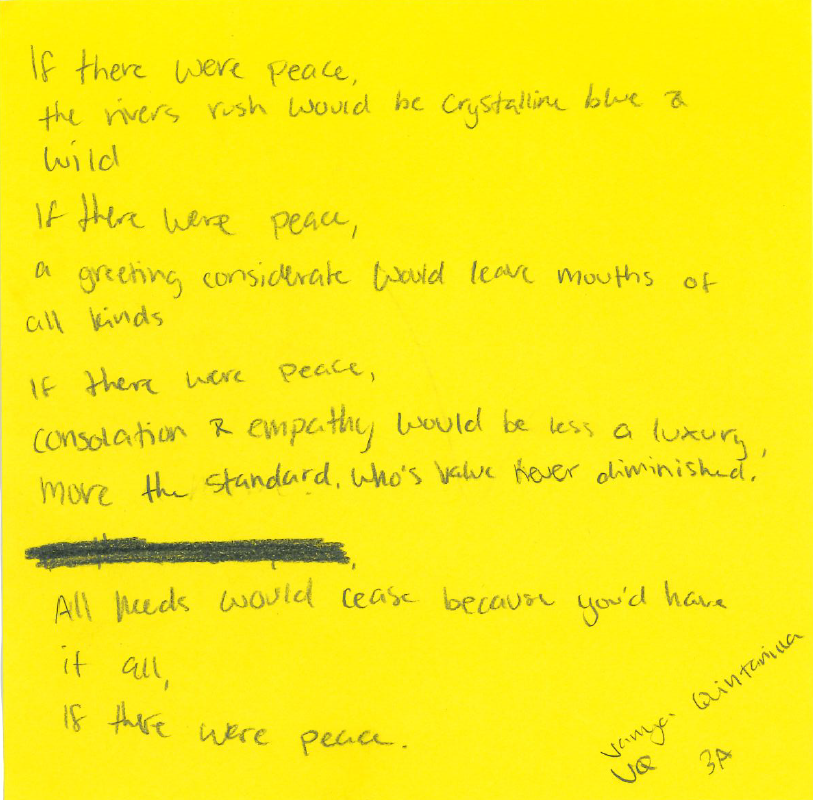 If there were peace,
the rivers rush would be crystalline blue &
wild
If there were peace,
a greeting considerate would leave mouths of
all kinds
If there were peace,
consolation & empathy would be less a luxury,
more the standard. Who's value never diminished.
All needs would cease because you'd have
it all,
If there were peace.
Quintanilla
VQ 3A